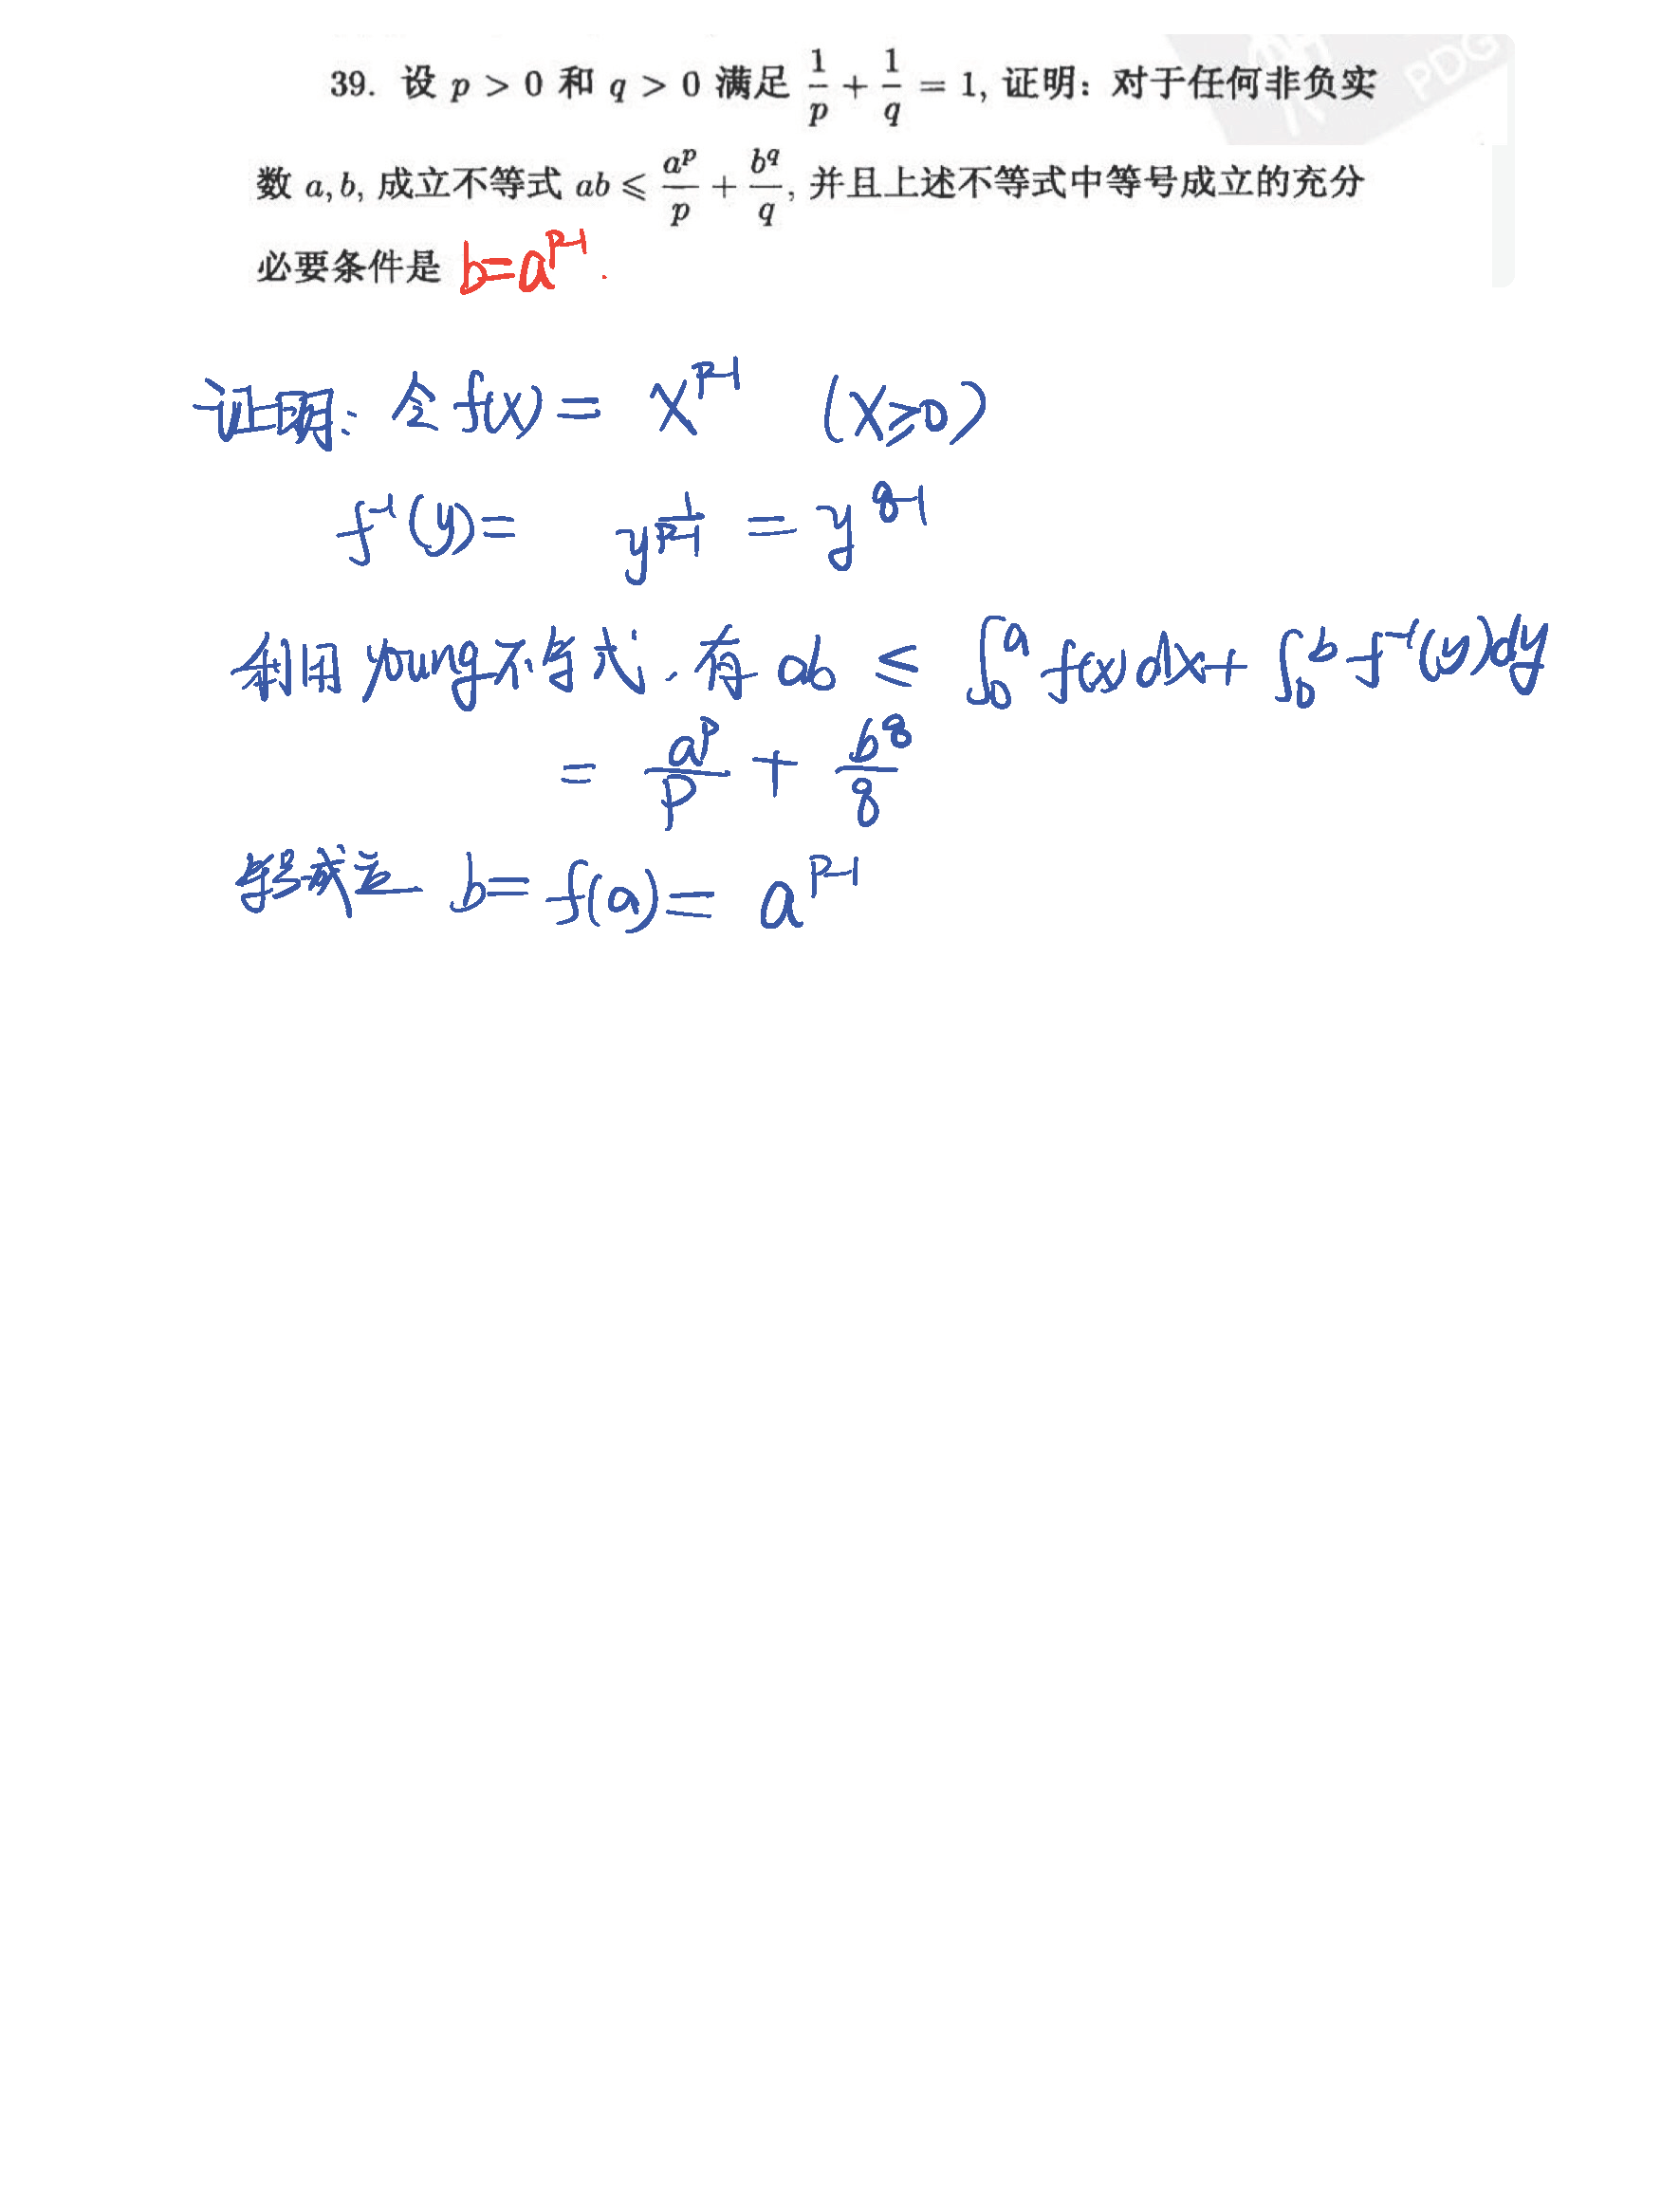 39. 设 p > 0 和 q > 0 满足 1/p + 1/q = 1, 证明: 对于任何非负实
数 a, b, 成立不等式 ab ⩽ a^p/p + b^q/q, 并且上述不等式中等号成立的充分
必要条件是 b=a^{p-1}.
PDG
证明: 令 f(x) = x^{p-1} (x≥0)
f^{-1}(y) = y^{1/(p-1)} = y^{q-1}
利用 young不等式. 有 ab ≤ ∫_0^a f(x)dx + ∫_0^b f^{-1}(y)dy
= a^p/p + b^q/q
等号成立 b = f(a) = a^{p-1}